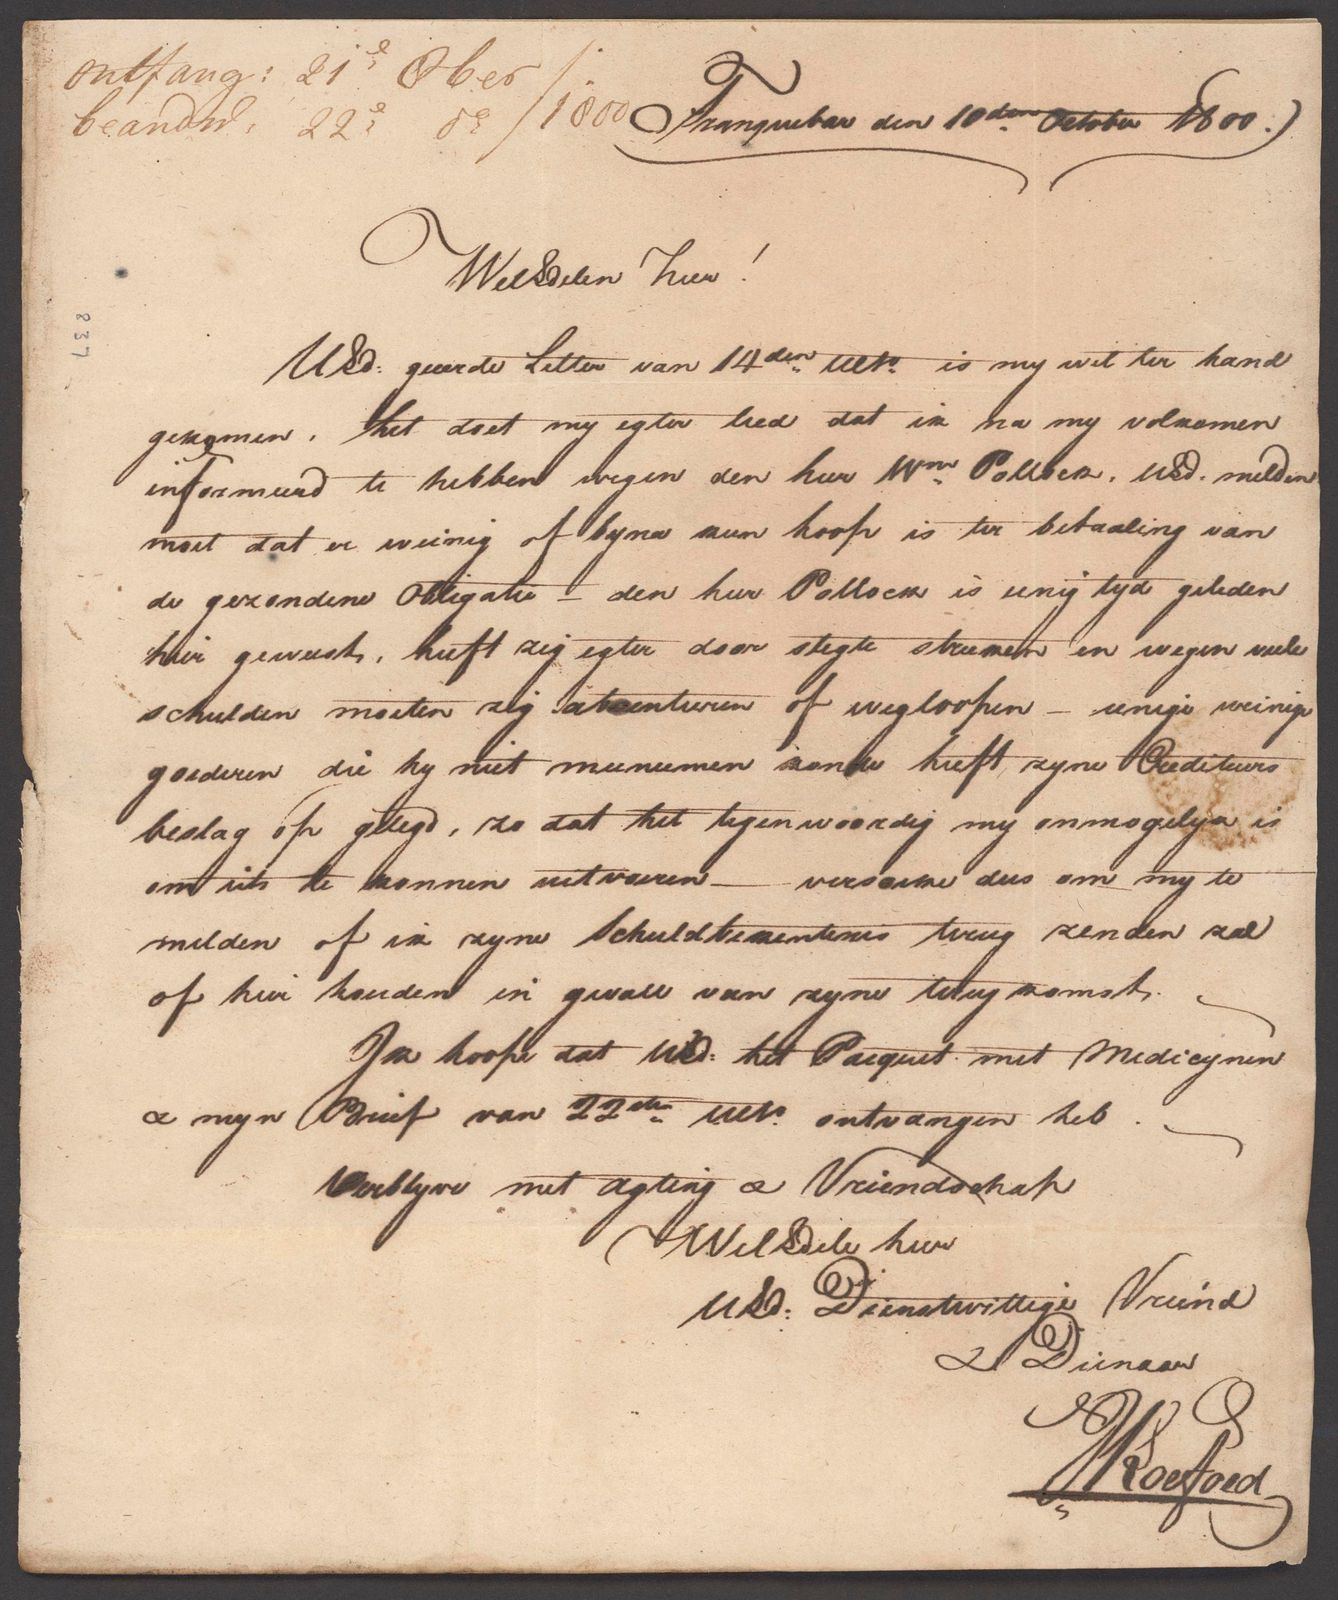 ontfang: 21e 8ber / 1800
beandw: 22e do /
Tranquebar den 10den October 1800.
WelEdelen Heer!
UEd: geerde Letter van 14den Ulto. is my wel ter hand
gekomen. Het doet my egter leed dat ik na my volkomen
informeerd te hebben wegen den heer Wm Pollock, UEd. melden
moet dat er weinig of byna keen hoop is ter betaaling van
de gezondene Obligatie — den heer Pollock is eenig tyd geleden
hier geweest, heeft zig egter door slegte streeken en wegen veele
schulden moeten zig absenteeren of wegloopen — eenige weinige
goederen die hy niet meeneemen konde heeft zyne Crediteurs
beslag op gelegd, zo dat het tegenwoordig my onmogelyk is
om iets te konnen uitvoeren — versoeke dus om my te
melden of ik zyne Schuldbekentenis terug zenden zal
of hier houden in gevall van zyne terug komst.
Ik hoope dat UEd: het Pacquet met Medicynen
& myn Brief van 22den Ulto. ontvangen heb.
Verblyve met agting & Vriendschap
WelEdele heer
UEd: Dienstwillige Vriend
& Dienaar
Koefoed
837